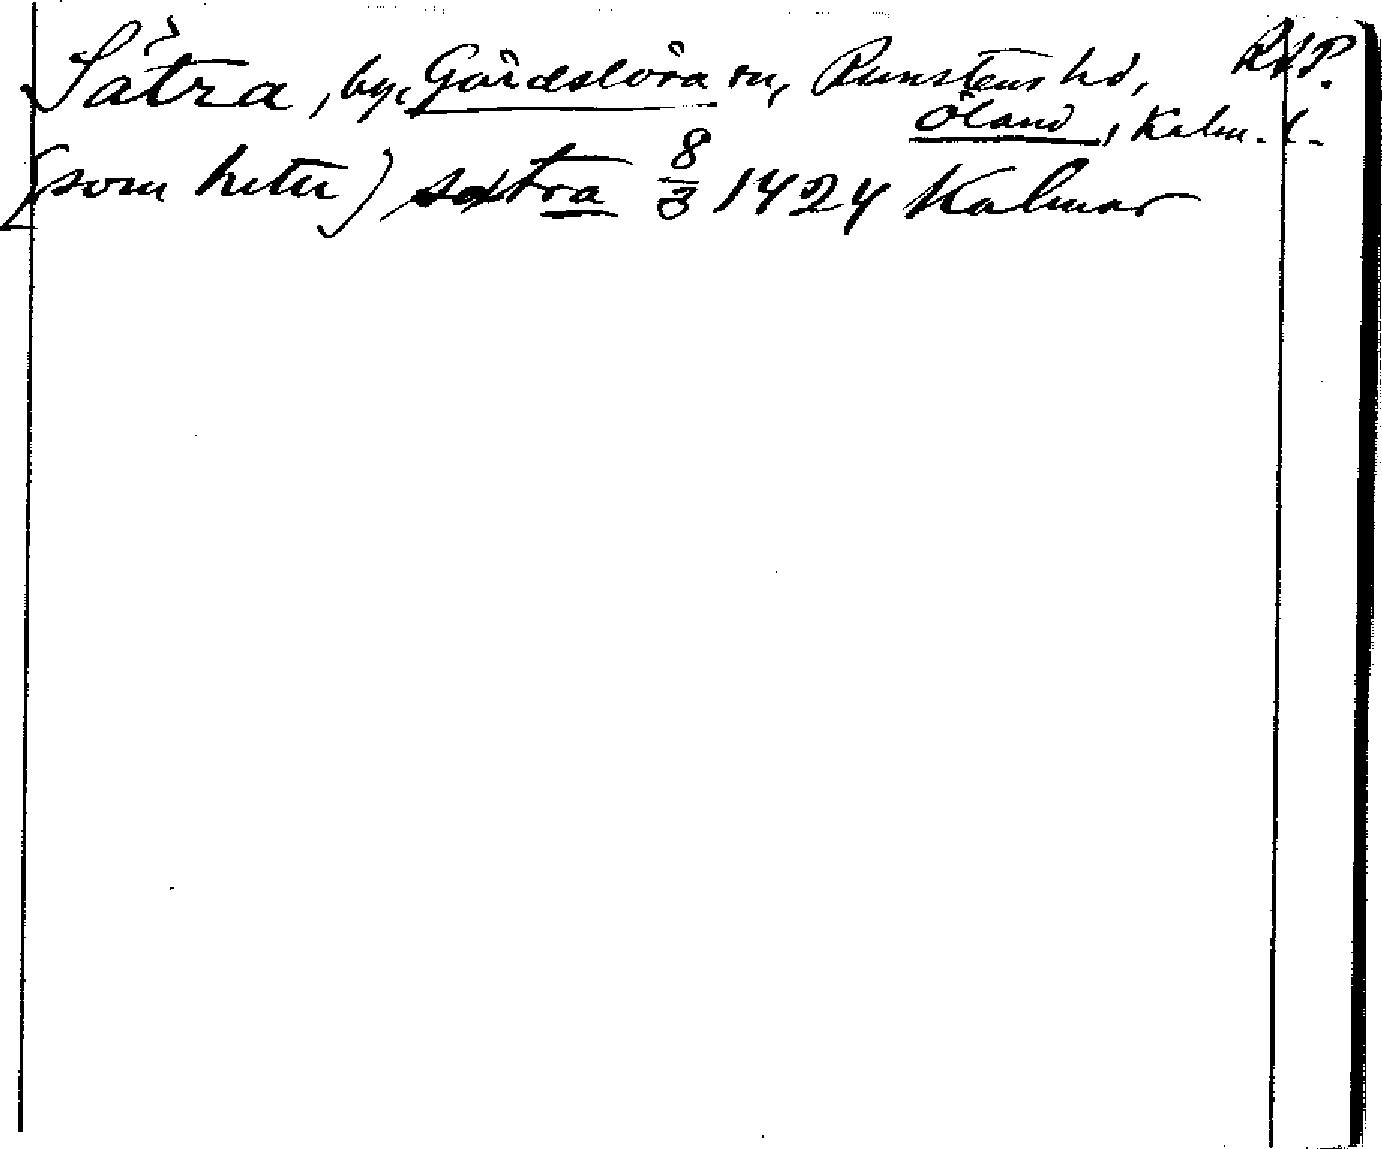 Sätra, by, Gärdslösa sn, Runstens hd, RAP.
Öland, Kalm. l.
(som heter) sætra 8/3 1424 Kalmar